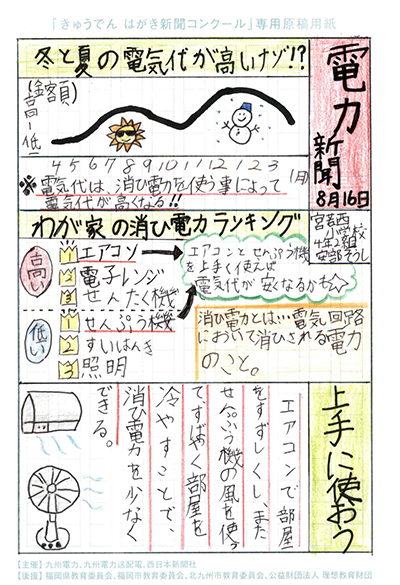 「きゅうでん はがき新聞コンクール」専用原稿用紙
電力
新聞
8月16日
宮若西
小学校
4年2組
安部そうし
冬と夏の電気代が高いナゾ!?
(金額)
高
低
4 5 6 7 8 9 10 11 12 1 2 3
(月)
※電気代は、消ひ電力を使う事によって
電気代が高くなる!!
わが家の消ひ電力ランキング
高い
1 エアコン
2 電子レンジ
3 せんたく機
低い
1 せんぷう機
2 すいはんき
3 照明
エアコンとせんぷう機
を上手く使えば
電気代が安くなるかも☆
消ひ電力とは…電気回路
において消ひされる電力
のこと。
上手に使おう
エアコンで部屋
をすずしくし、また
せんぷう機の風を使っ
てすばやく部屋を
冷やすことで、
消ひ電力を少なく
できる。
【主催】九州電力、九州電力送配電、西日本新聞社
【後援】福岡県教育委員会、福岡市教育委員会、北九州市教育委員会、公益財団法人 理想教育財団